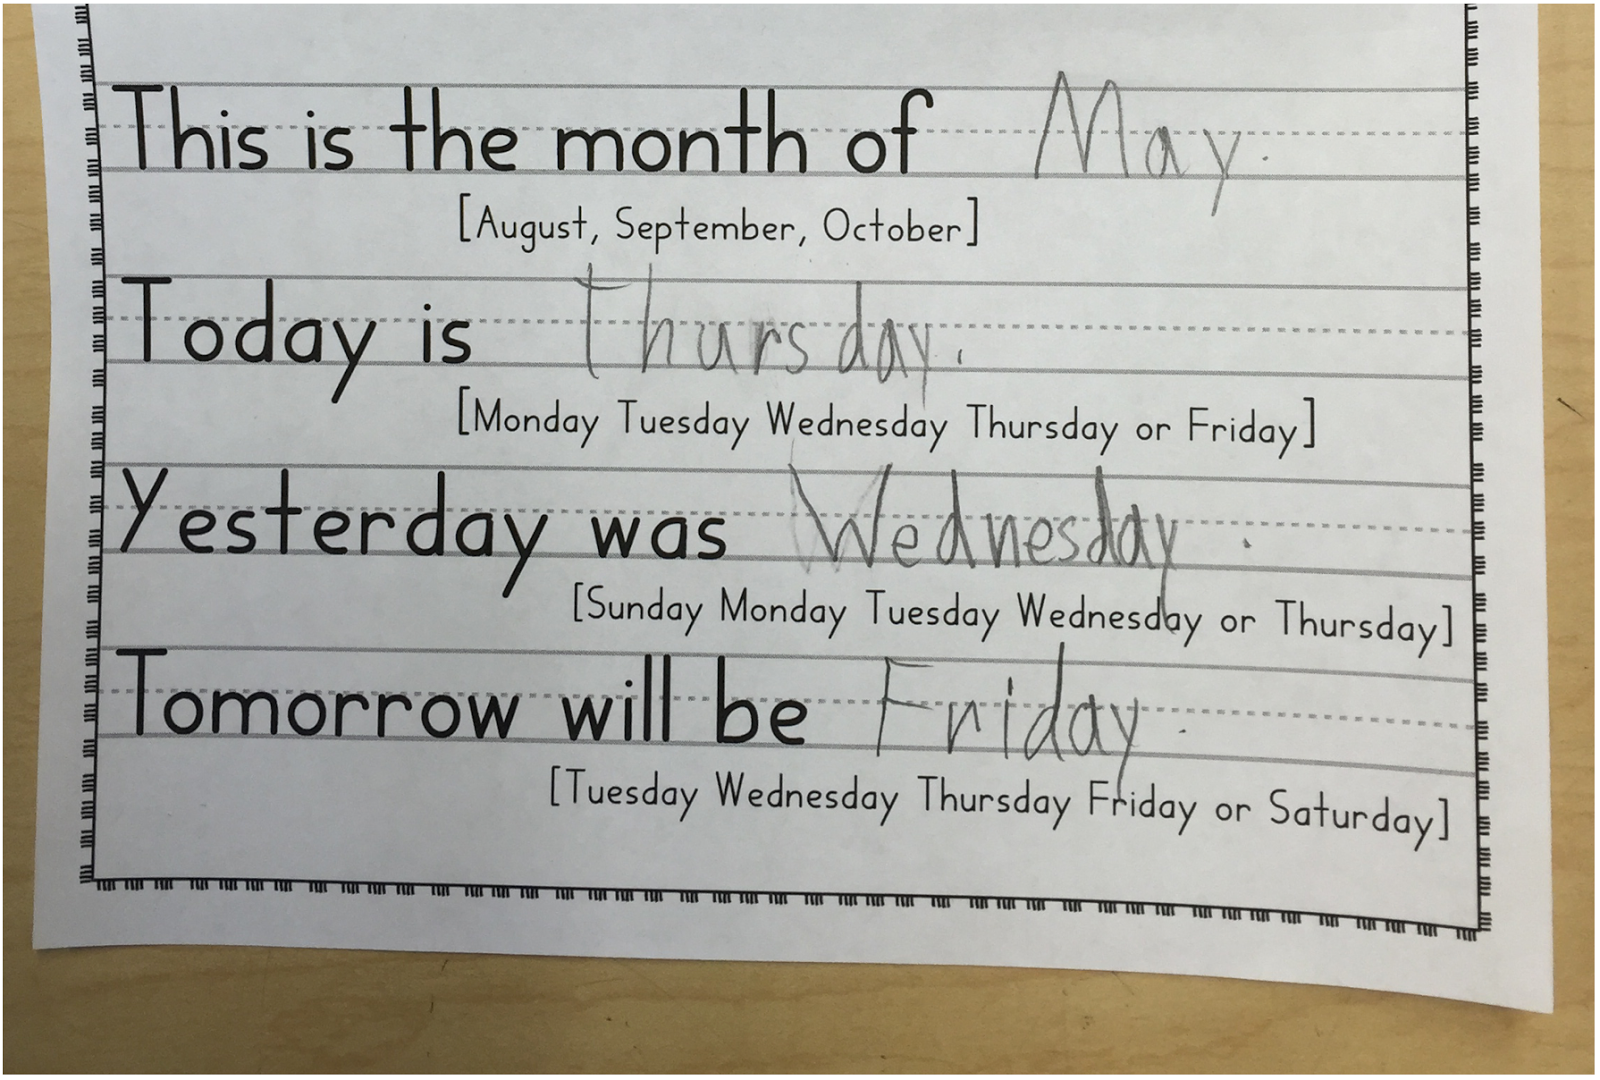 This is the month of May.
[August, September, October]
Today is thursday.
[Monday Tuesday Wednesday Thursday or Friday]
Yesterday was Wednesday.
[Sunday Monday Tuesday Wednesday or Thursday]
Tomorrow will be Friday.
[Tuesday Wednesday Thursday Friday or Saturday]